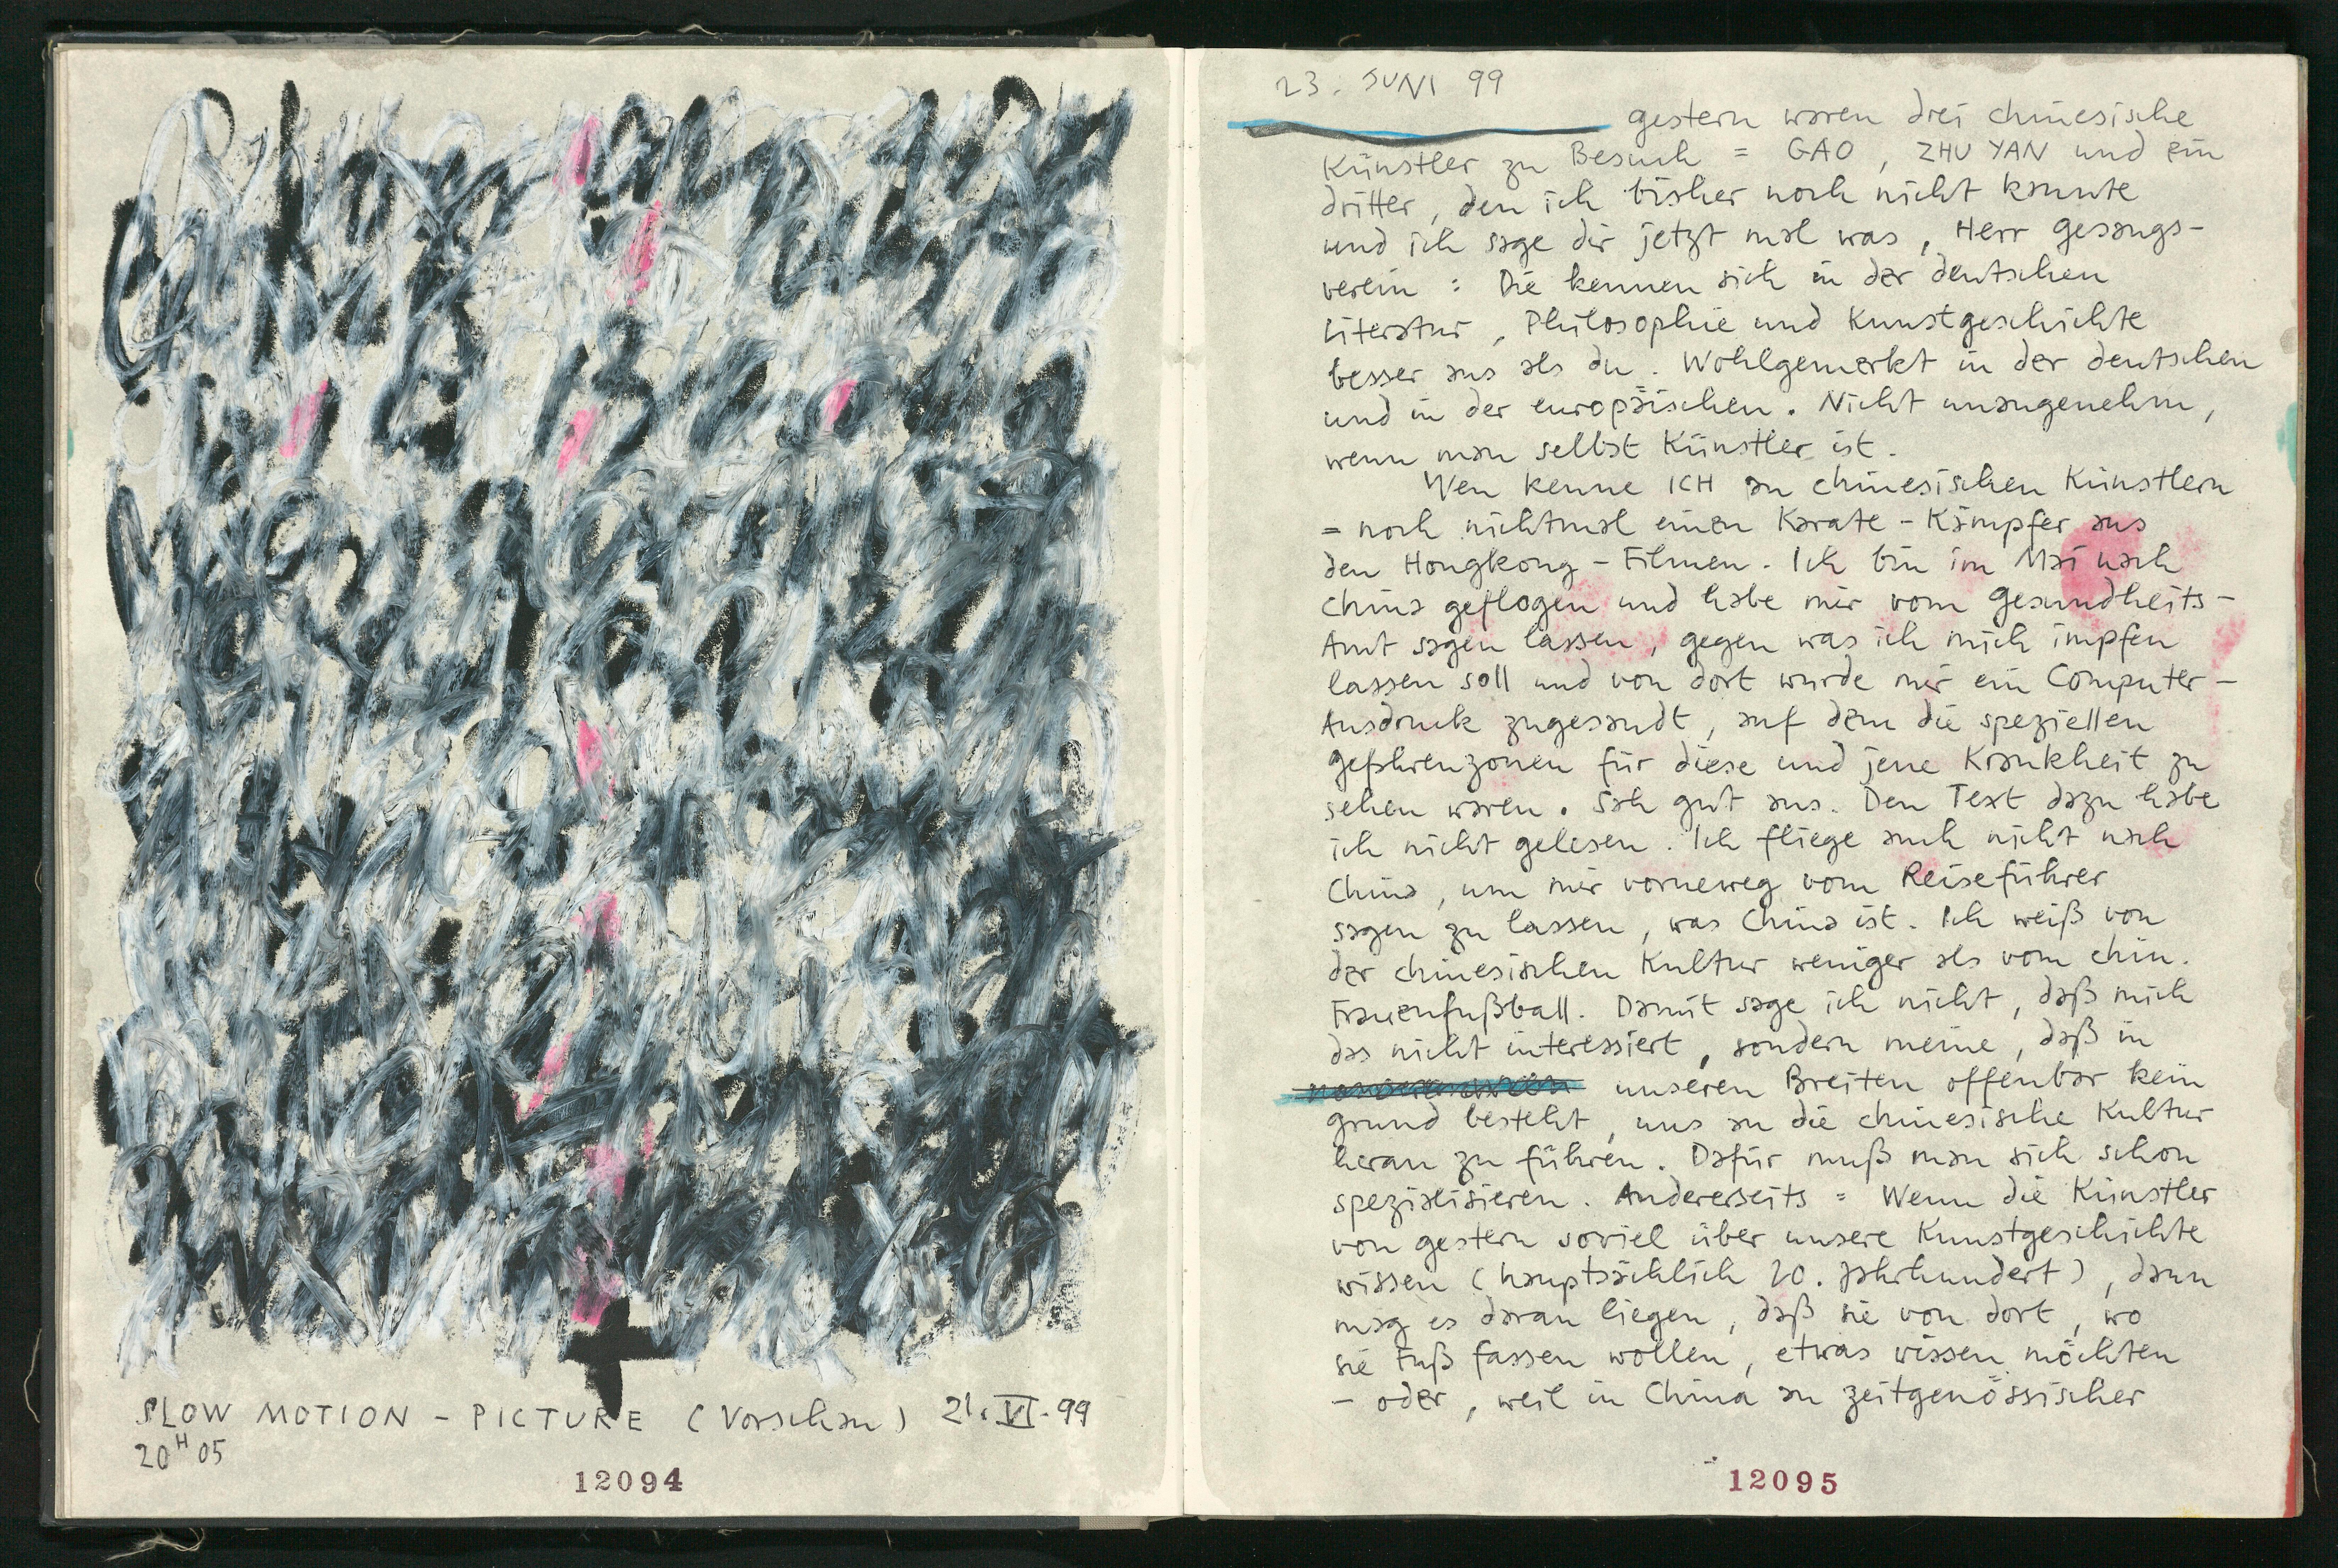 SLOW MOTION - PICTURE (Vorschau) 21. VI. 99
20H 05
12094
23. JUNI 99
gestern waren drei chinesische
Künstler zu Besuch = GAO, ZHU YAN und ein
dritter, den ich bisher noch nicht kannte
und ich sage dir jetzt mal was, Herr Gesangs-
verein : Die kennen sich in der deutschen
Literatur, Philosophie und Kunstgeschichte
besser aus als du. Wohlgemerkt in der deutschen
und in der europäischen. Nicht unangenehm,
wenn man selbst Künstler ist.
Wen kenne ICH an chinesischen Künstlern
= noch nichtmal einen Karate-Kämpfer aus
den Hongkong-Filmen. Ich bin im Mai nach
China geflogen und habe mir vom Gesundheits-
Amt sagen lassen, gegen was ich mich impfen
lassen soll und von dort wurde mir ein Computer-
Ausdruck zugesandt, auf dem die speziellen
Gefahrenzonen für diese und jene Krankheit zu
sehen waren. Sah gut aus. Den Text dazu habe
ich nicht gelesen. Ich fliege auch nicht nach
China, um mir vorneweg vom Reiseführer
sagen zu lassen, was China ist. Ich weiß von
der chinesischen Kultur weniger als vom chin.
Frauenfußball. Damit sage ich nicht, daß mich
das nicht interessiert, sondern meine, daß in
unseren Breiten offenbar kein
Grund besteht, uns an die chinesische Kultur
heran zu führen. Dafür muß man sich schon
spezialisieren. Andererseits = Wenn die Künstler
von gestern soviel über unsere Kunstgeschichte
wissen (hauptsächlich 20. Jahrhundert), dann
mag es daran liegen, daß sie von dort, wo
sie Fuß fassen wollen, etwas wissen möchten
- oder, weil in China an zeitgenössischer
12095